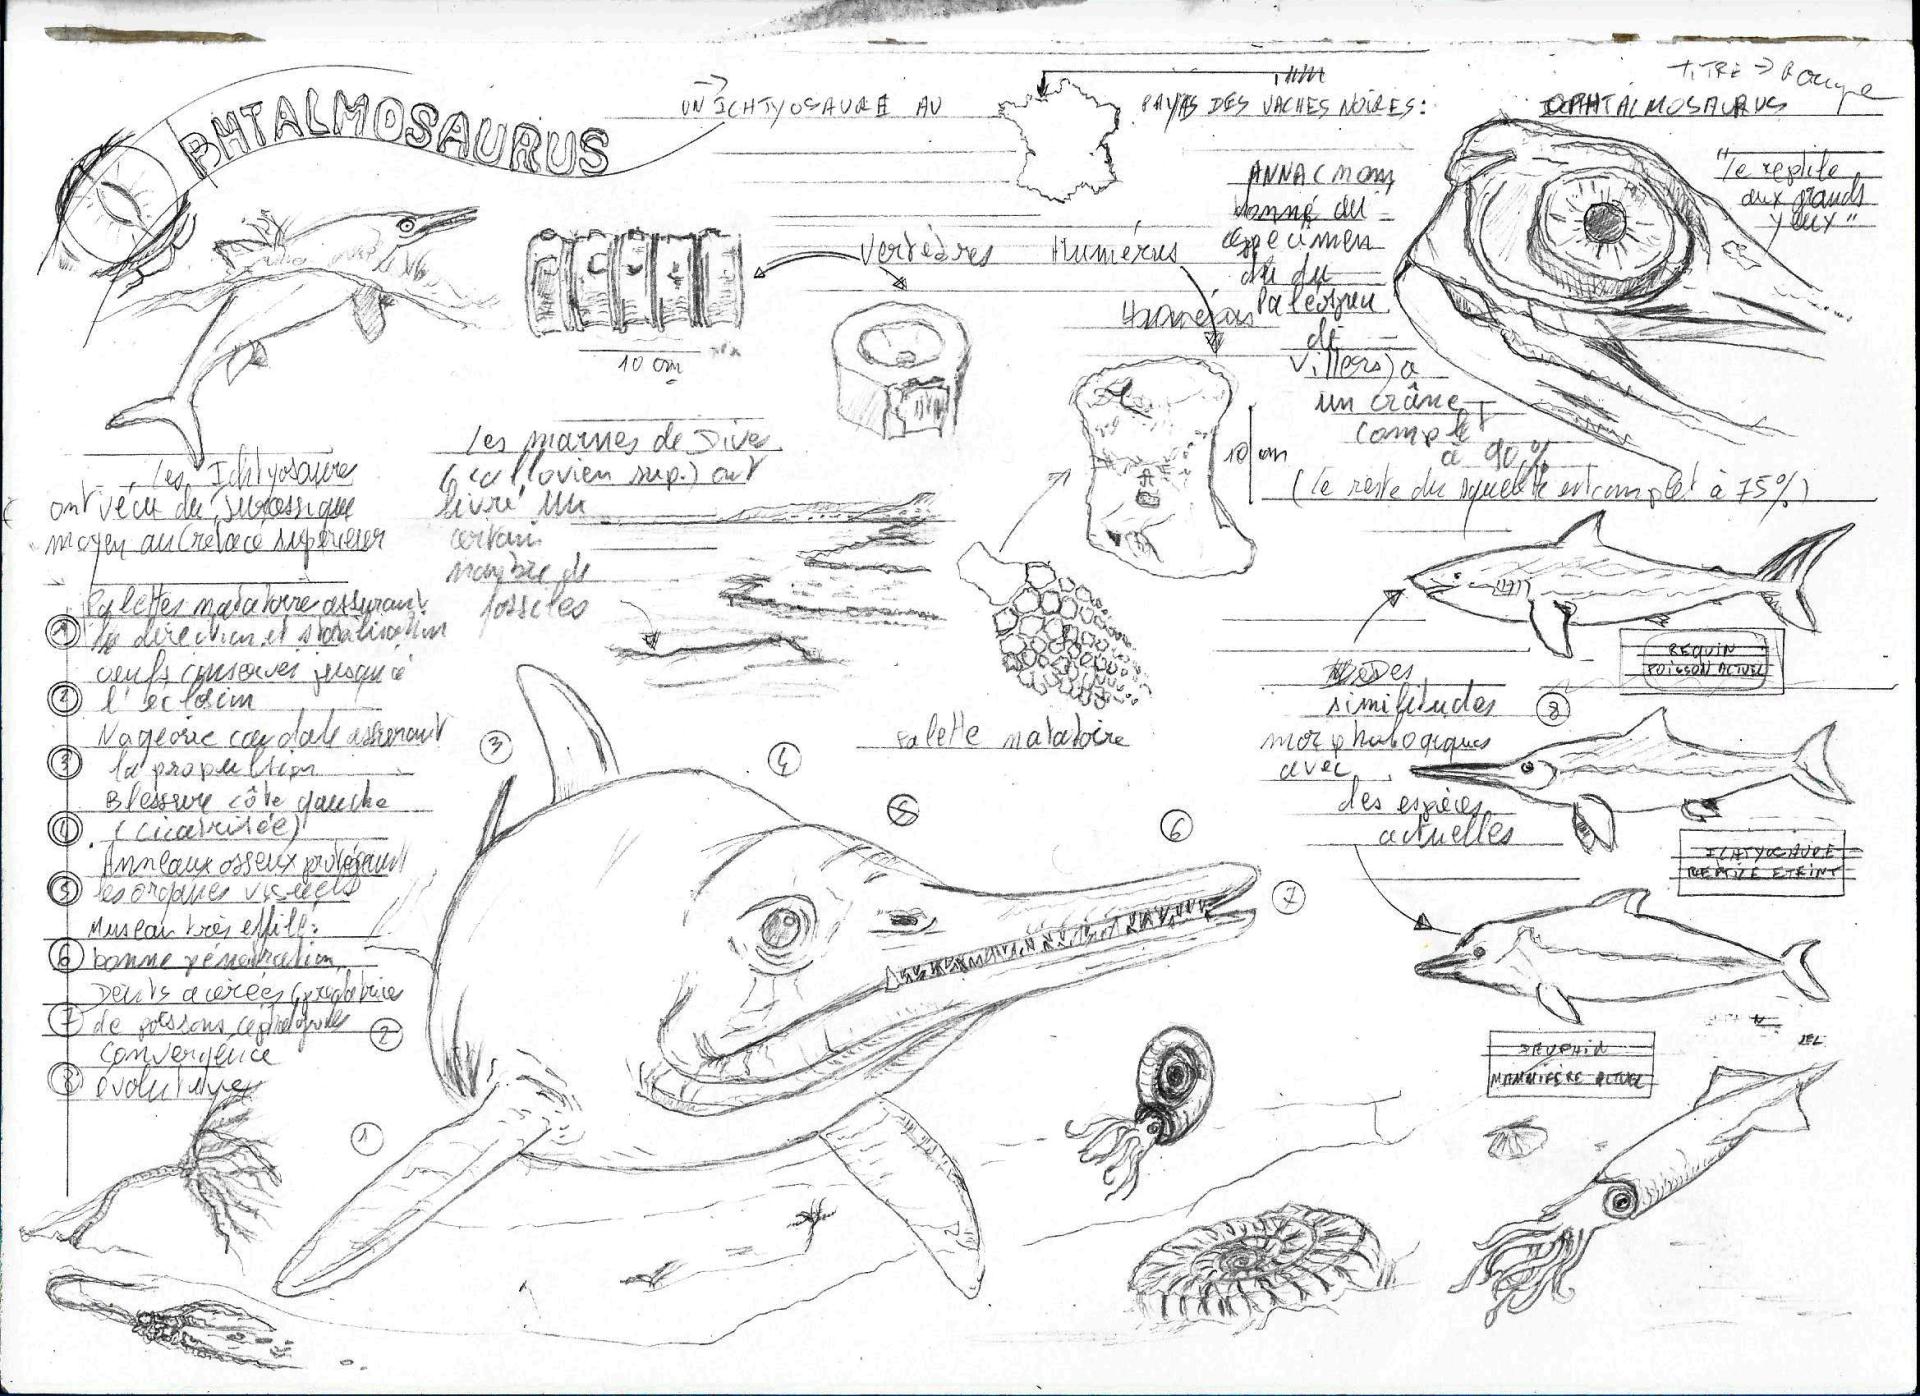 TITRE → Rouge
OPHTALMOSAURUS
UN ICHTYOSAURE AU
PAYAS DES VACHES NOIRES:
OPHTALMOSAURUS
"le reptile
aux grands
yeux"
ANNA (nom
donné au
spécimen
du du
Paléospace
de
Villers) a
un crâne
complet
à 90%
(le reste du squelette est complet à 75%)
Vertèbres
Humérus
Humérus
10 cm
10 cm
Les Ichtyosaures
ont vécu du Jurassique
moyen au Crétacé supérieur
Les marnes de Dives
(callovien sup.) ont
livré un
certain
nombre de
fossiles
Palettes natatoire assurant
① la direction et stabilisation
oeufs conservés jusqu'à
② l'éclosion
Nageoire caudale assurant
③ la propulsion
Blessure côté gauche
④ (cicatrisée)
Anneaux osseux protégeant
⑤ les organes visuels
Museau très effilé:
⑥ bonne pénétration
Dents acérées (prédatrice
⑦ de poissons, céphalopodes
Convergence
⑧ évolutive
Palette natatoire
Des
similitudes
morphologiques
avec
des espèces
actuelles
REQUIN
POISSON ACTUEL
⑧
ICHTYOSAURE
REPTILE ETEINT
DAUPHIN
MAMMIFÈRE ACTUEL
③
④
⑤
⑥
⑦
②
①